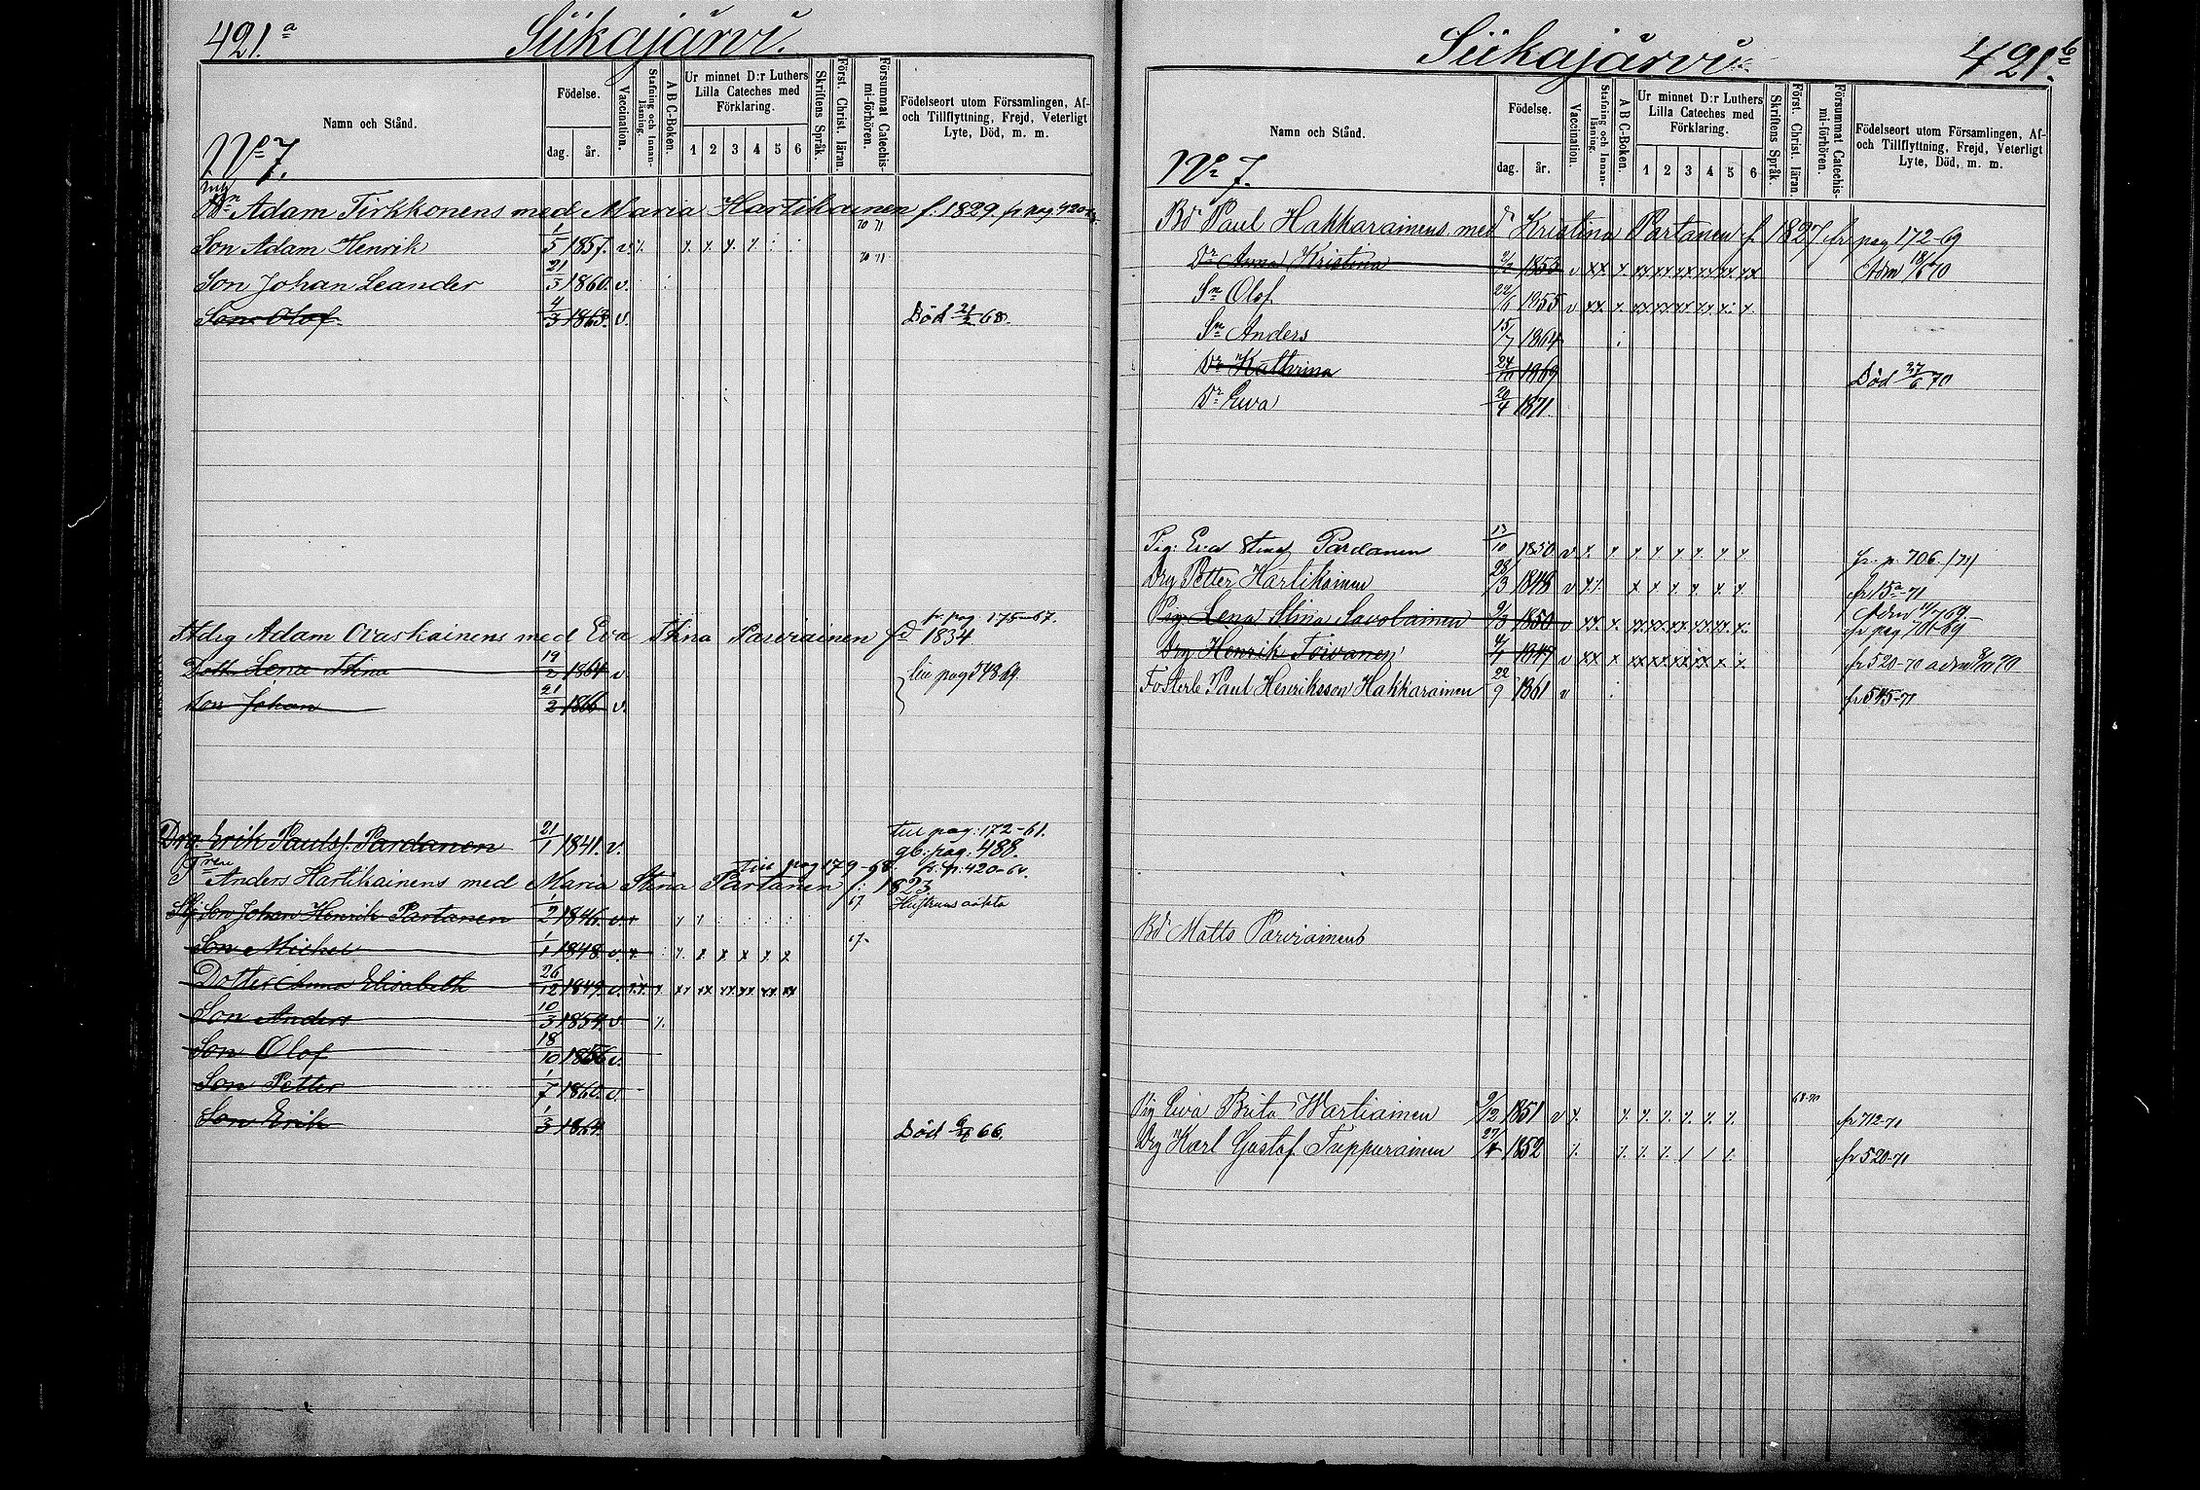 421.a
Siikajärvi.
Namn och Stånd.
Födelse.
dag.
år.
Vaccination.
Stafning och Innan-läsning.
A B C-Boken.
Ur minnet D:r Luthers
Lilla Cateches med
Förklaring.
1 2 3 4 5 6
Skriftens Språk.
Först. Christ. läran.
Försummat Catechis-mi-förhören.
Födelseort utom Församlingen, Af-
och Tillflyttning, Frejd, Veterligt
Lyte, Död, m. m.
No 7.
Adam Tirkkonens med Maria Hartikainen f: 1829 fr pag 420
Son Adam Henrik 1/5 1857. v. 70 71
Son Johan Leander 21/3 1860. v. 70 71
Son Olof 4/3 1863. v. Död 21/2 68.
fr pag 175-67.
Adam Ovaskainens med Eva Stina Parviainen fd 1834
Dott Lena Stina 19/2 1864 v
Son Johan 21/2 1866 v. pag 543 69.
till pag: 172-61.
Drg: Erik Paulsf. Pardanen 21/1 1841. v. gb: pag: 488.
till pag 179-68 fr: p: 420-64.
Anders Hartikainens med Maria Stina Partanen f: 1823
Son Johan Henrik Partanen 1/2 1846. v. 67 Hustruns oäkta
Son Michel 1/1 1848. v. 67
Dotter Anna Elisabeth 26/12 1849. v.
Son Anders 10/3 1854. v.
Son Olof 18/10 1856 v.
Son Petter 1/7 1860. v
Son Erik 1/3 1864. Död 6/4 66.
Siikajärvi
421.b
Namn och Stånd.
Födelse.
dag.
år.
Vaccination.
Stafning och Innan-läsning.
A B C-Boken.
Ur minnet D:r Luthers
Lilla Cateches med
Förklaring.
1 2 3 4 5 6
Skriftens Språk.
Först. Christ. läran.
Försummat Catechis-mi-förhören.
Födelseort utom Församlingen, Af-
och Tillflyttning, Frejd, Veterligt
Lyte, Död, m. m.
No 7.
Bd Paul Hakkarainens med Kristina Partanen f 1827 fr pag 172-69
Dr Anna Kristina 1853 v Adm 18/6 70
Sn Olof 22/6 1855 v
Sn Anders 15/7 1864
Dr Kathrina 24/10 1869 Död 27/6 70
Dr Ewa 20/4 1871.
Pig: Eva Stina Pardanen 12/10 1850 v fr. p 706. /71
Drg Petter Hartikainen 28/3 1848 v fr 15a-71
Pig Lena Stina Savolainen 9/3 1850 v fr pag 701-69
Drg Henrik Toivanen 4/1 1847 v fr 520-70 adm 70
Fosterb Paul Henriksson Hakkarainen 22/9 1861 v fr 545-71
Bd Matts Parviainens
Pig Ewa Brita Wartiainen 9/12 1851 v 68-70 fr 712-71
Drg Karl Gustaf Tuppurainen 27/4 1852 fr 520-71